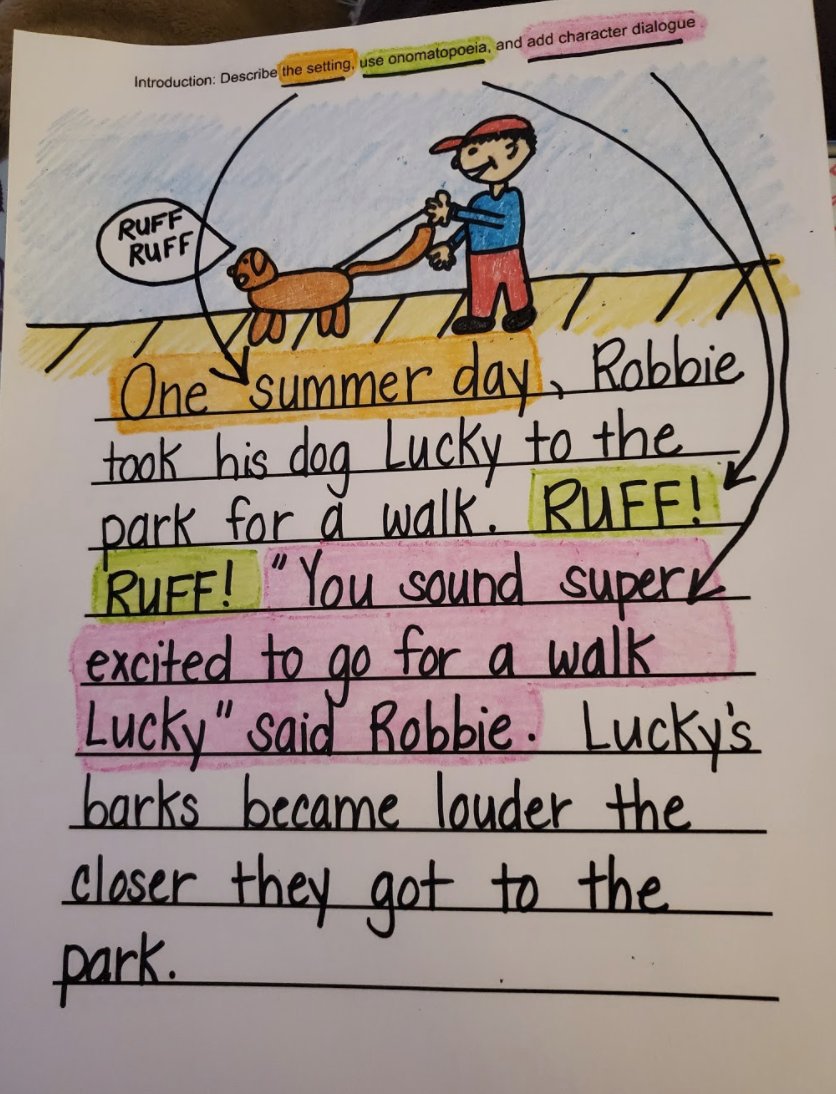 Introduction: Describe the setting, use onomatopoeia, and add character dialogue
RUFF
RUFF
One summer day, Robbie
took his dog Lucky to the
park for a walk. RUFF!
RUFF! "You sound super
excited to go for a walk
Lucky" said Robbie. Lucky's
barks became louder the
closer they got to the
park.